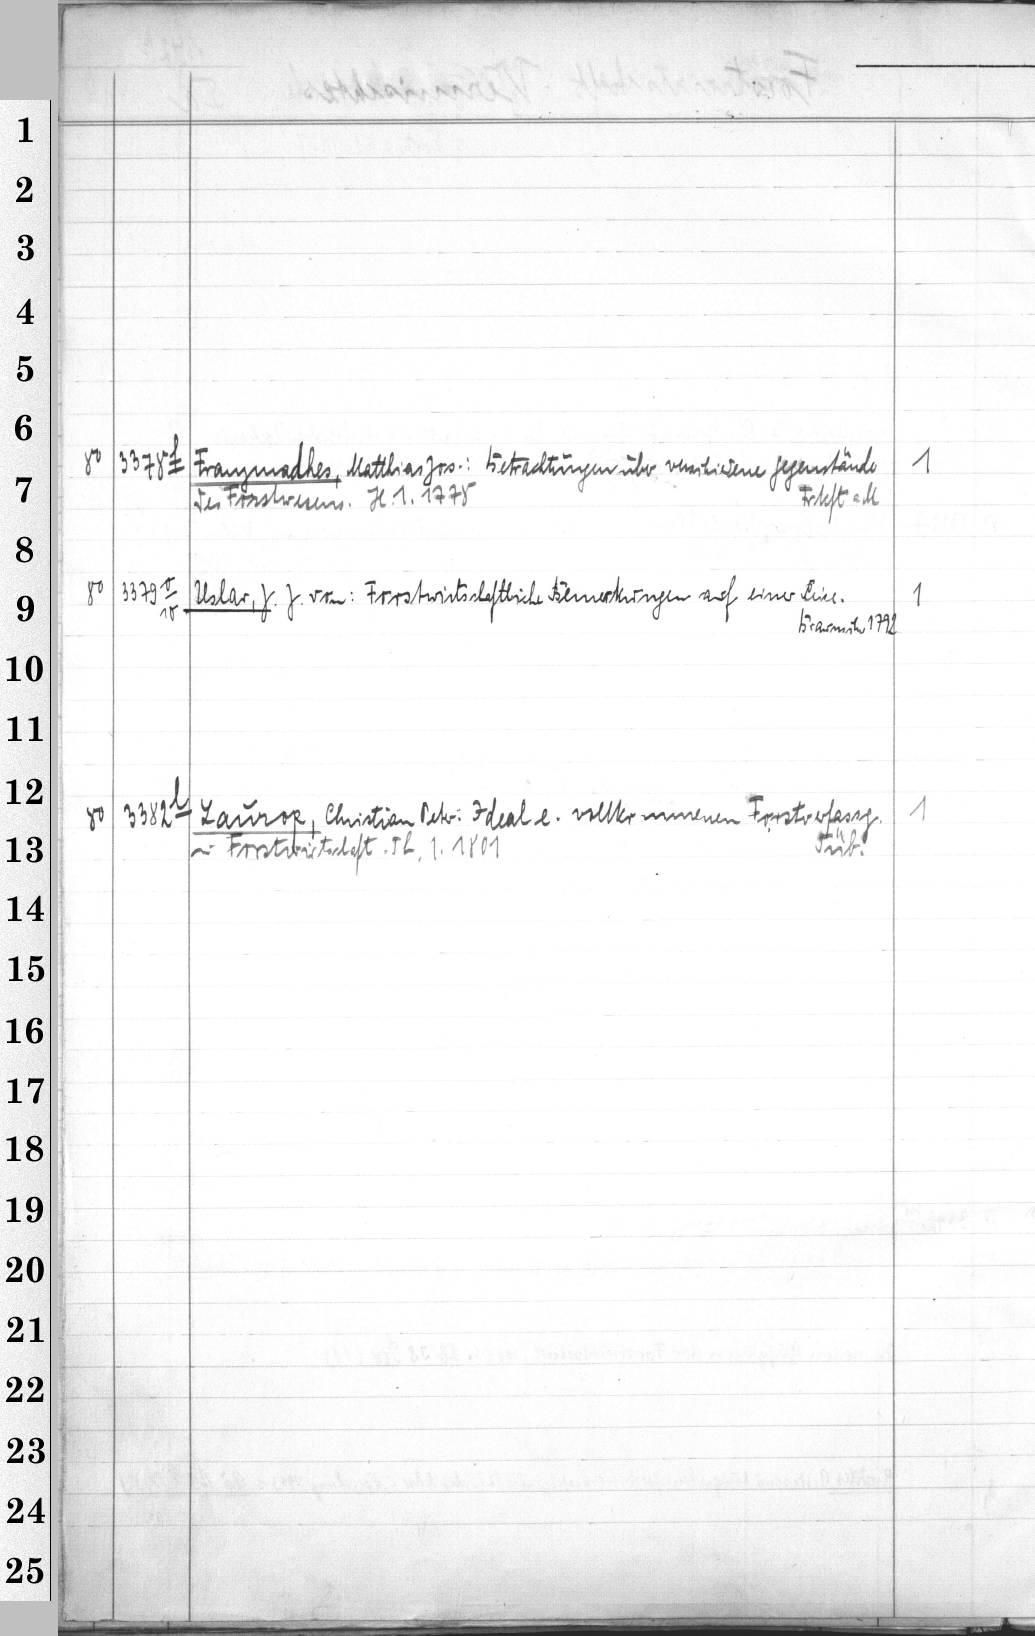 1
2
3
4
5
6
8° 3378 f Franzmadhes, Matthias Jos.: Betrachtungen über verschiedene Gegenstände 1
7
des Forstwesens. H. 1. 1778 Frkft a. M
8
8° 3379 v/10 Uslar, J. J. von: Forstwirtschaftliche Bemerkungen auf einer Reise. 1
9
Braunschw 1792
10
11
12
8° 3382 l Laurop, Christian Petr: Ideal e. vollkommenen Forstverfassg. 1
13
Forstwirtschaft. Th. 1. 1801 Tüb.
14
15
16
17
18
19
20
21
22
23
24
25